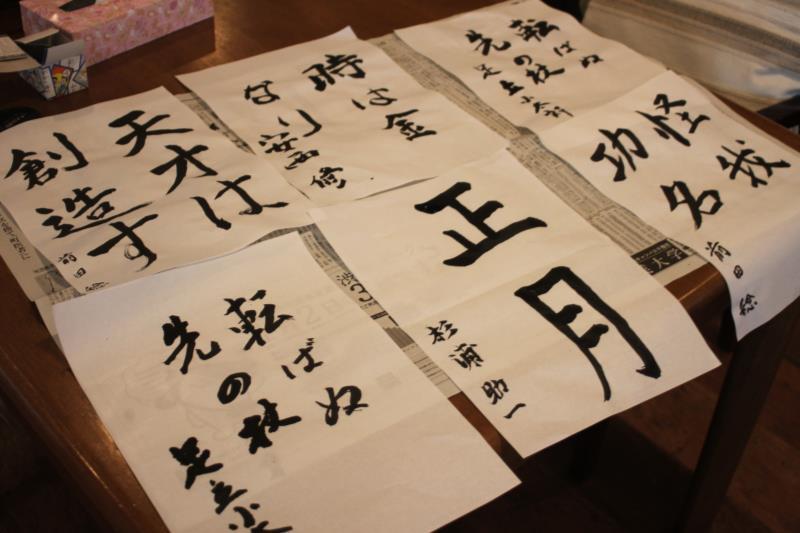 天才は
創造す
前田
時は金
なり
安西 修
転ばぬ
先の杖
足立
怪我
功名
前田
正月
杉浦助一
転ばぬ
先の杖
足立小
大学